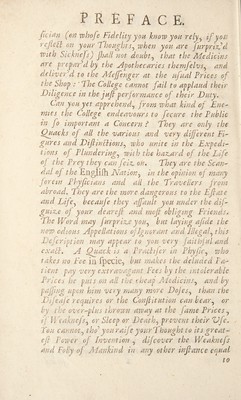 PREFACE.
ſician (on whoſe Fidelity you know you rely, if you
reflect on your Thoughts, when you are ſurpriz'd
with Sickneſs) ſhall not doubt, that the Medicins
are prepar'd by the Apothecaries themſelvs, and
deliver'd to the Meſſenger at the uſual Prices of
the Shop: The College cannot fail to applaud their
Diligence in the juſt performance of their Duty.
Can you yet apprehend, from what kind of Ene-
mies the College endeavours to ſecure the Public
in ſo important a Concern? They are only the
Quacks of all the various and very different Fi-
gures and Diſtinctions, who unite in the Expedi-
tions of Plundering, with the hazard of the Life
of the Prey they can ſeiz on. They are the Scan-
dal of the Engliſh Nation, in the opinion of many
forein Phyſicians and all the Travellers from
abroad. They are the more dangerous to the Eſtate
and Life, becauſe they aſſault you under the diſ-
guize of your deareſt and moſt obliging Friends.
The Word may ſurprize you, but laying aſide the
new odious Appellations of Ignorant and Illegal, this
Deſcription may appear to you very faithful and
exact. A Quack is a Practiſer in Phyſic, who
takes no Fee in ſpecie, but makes the deluded Pa-
tient pay very extravagant Fees by the intolerable
Prices he puts on all the cheap Medicins, and by
paſſing upon him very many more Doſes, than the
Diſeaſe requires or the Conſtitution can bear, or
by the over-plus thrown away at the ſame Prices,
if Weakneſs, or Sleep or Death, prevent their Uſe.
You cannot, tho' you raiſe your Thought to its great-
eſt Power of Invention, diſcover the Weakneſs
and Folly of Mankind in any other inſtance equal
to